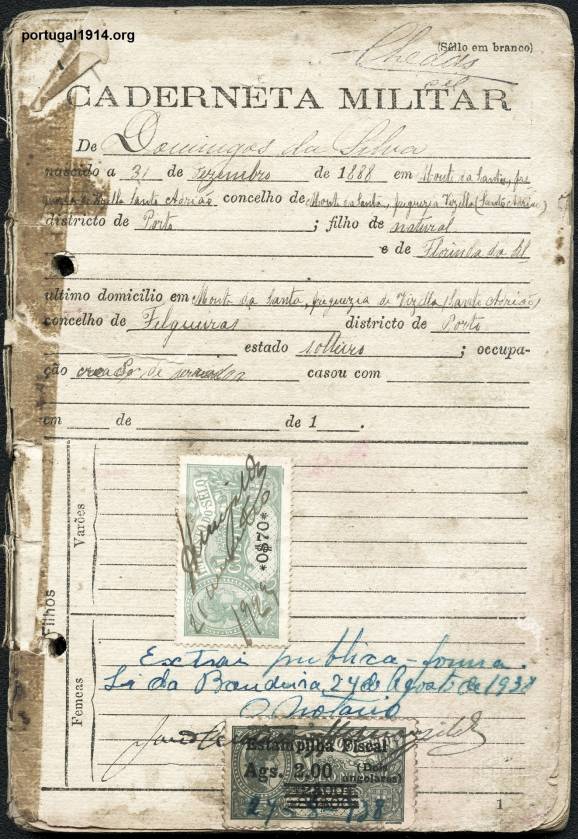 portugal1914.org
(Sêllo em branco)
CADERNETA MILITAR
De Domingos da Silva
nascido a 31 de Dezembro de 1888 em Mont da Santa, fre
Vizella Santo Adrião concelho de Mont da Santa, freguezia Vizella (Santo Adrião)
districto de Porto ; filho de natural
e de Florinda da Sil
ultimo domicilio em Mont da Santa, freguezia de Vizella (Santo Adrião)
concelho de Felgueiras districto de Porto
estado solteiro ; occupa-
ção de casou com
em de de 1 .
Filhos
Varões
Femeas
*0$70*
21
1927
Extraí publica-forma.
Sá da Bandeira 24 de Agosto de 1938
O Notario
Estampilha Fiscal
Ags. 2.00 (Dois
angolares)
24-8-938
1